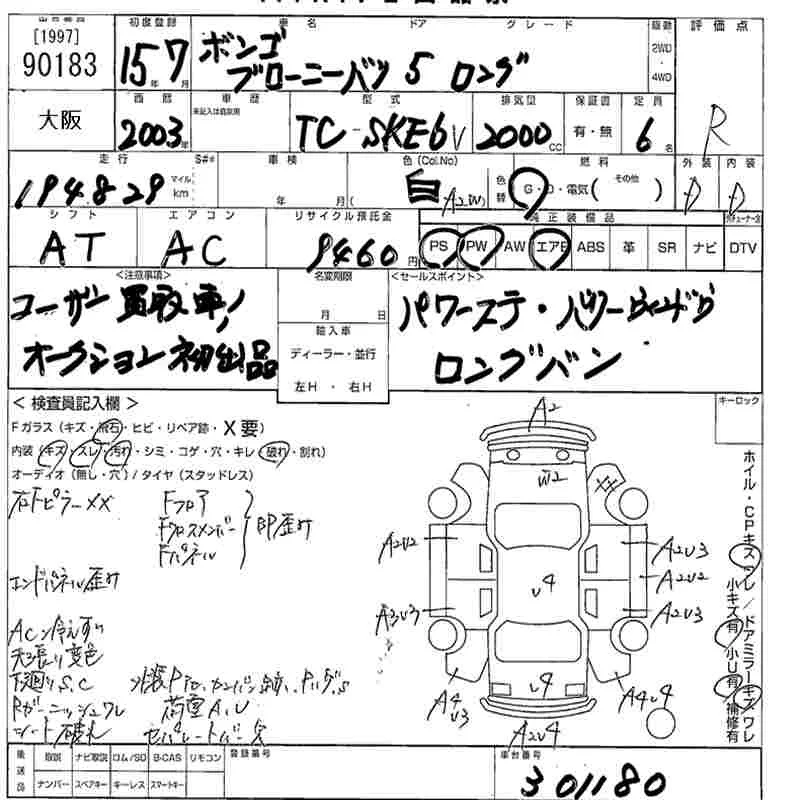 出品番号 初度登録 車名 ドア グレード 駆動 評価点
[1997] 90183 15年7月 ボンゴ ブローニーバン 5 ロング 2WD・4WD R
大阪 西暦 車歴 型式 排気量 保証書 定員
2003年 未記入は自家用 TC-SKE6V 2000cc 有・無 6名
走行 S## 車検 色(Col.No) 燃料 外装 内装
194829 マイル km 年 月( 白 A2W) 色替 G・D・電気( その他 ) D D
シフト エアコン リサイクル預託金 純正装備品
AT AC 9460円 PS PW AW エアB ABS 革 SR ナビ DTV
<注意事項> 名変期限 <セールスポイント>
コーザン買取車!
オークション初出品
月 日
輸入車
ディーラー・並行
左H・右H
パワーステ・パワーウィンドウ
ロングバン
<検査員記入欄> キーロック
Fガラス(キズ・飛石・ヒビ・リペア跡・X要)
内装(キズ・スレ・汚れ・シミ・コゲ・穴・キレ・破れ・割れ)
オーディオ(無し・穴)/タイヤ(スタッドレス)
右FピラーXX Fフロア
Fクロスメンバー
Fパネル
即歪み
エンドパネル歪み
ACン冷えずり
天張り変色
下廻りS.C
Rガーニッシュワレ
シート破れ
荷室A.U
セパレートバー欠
A2
W2
XX
A2U2
A3U3
A2U3
A2U2
A2U3
U4
U4
A4U3
A4U4
A2U4
ホイル・CPキズワレ/ドアミラーキズワレ
小キズ有/小U有/補修有
後送品 取説 ナビ取説 ロム/SD B-CAS リモコン 登録番号 車台番号
ナンバー スペアキー キーレス スマートキー
301180